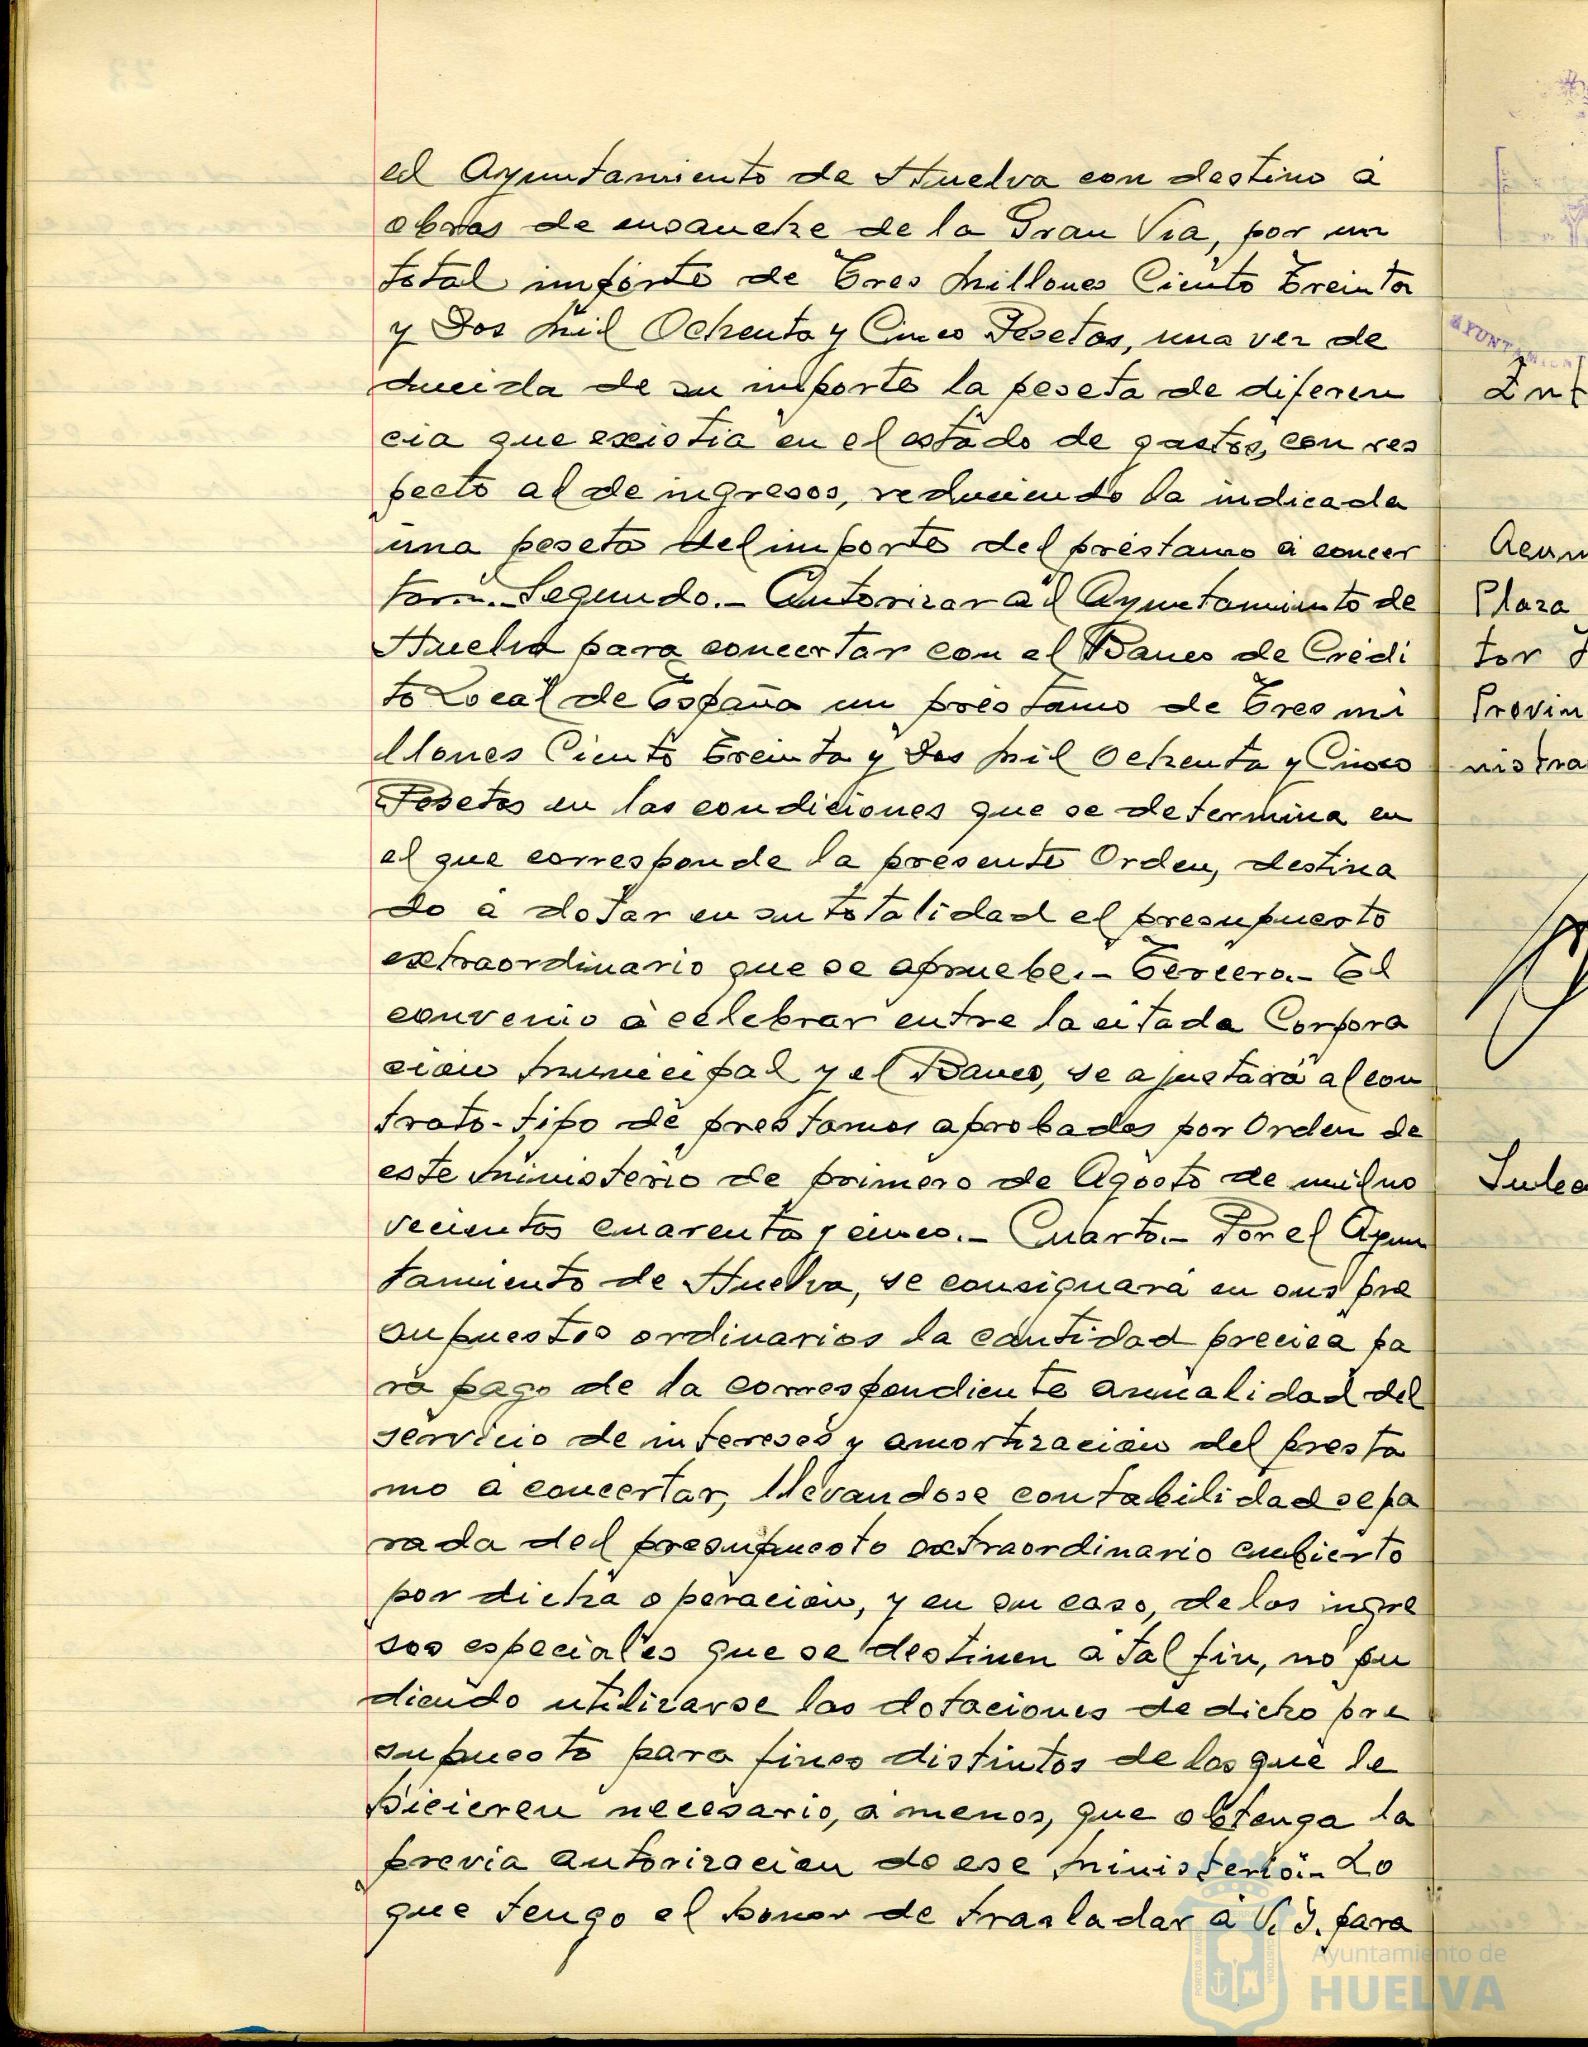 el Ayuntamiento de Huelva con destino á
obras de ensanche de la Gran Via, por un
total importe de Tres Millones Ciento Treinta
y Dos Mil Ochenta y Cinco Pesetas, una vez de
ducida de su importe la peseta de diferen
cia que existia en el estado de gastos, con res
pecto al de ingresos, reduciendo la indicada
una peseta del importe del préstamo á concer
tar.- Segundo.- Autorizar al Ayuntamiento de
Huelva para concertar con el Banco de Crédi
to Local de España un préstamo de Tres mi
llones Ciento Treinta y Dos Mil Ochenta y Cinco
Pesetas en las condiciones que se determina en
el que corresponde la presente Orden, destina
do á dotar en su totalidad el presupuesto
extraordinario que se apruebe.- Tercero.- El
convenio á celebrar entre la citada Corpora
ción Municipal y el Banco, se ajustará al con
trato-tipo de prestamos aprobados por Orden de
este Ministerio de primero de Agosto de mil no
vecientos cuarenta y cinco.- Cuarto.- Por el Ayun
tamiento de Huelva, se consignará en sus pre
supuestos ordinarios la cantidad precisa pa
ra pago de la correspondiente anualidad del
servicio de intereses y amortización del presta
mo á concertar, llevandose contabilidad sepa
rada del presupuesto extraordinario cubierto
por dicha operación, y en su caso, de los ingre
sos especiales que se destinen á tal fin, no pu
diendo utilizarse las dotaciones de dicho pre
supuesto para fines distintos de los que le
hicieren necesario, á menos, que obtenga la
previa autorización de ese Ministerio.- Lo
que tengo el honor de trasladar á V. I. para
Ayuntamiento de
HUELVA
Plaza
tor
Provin
nistra